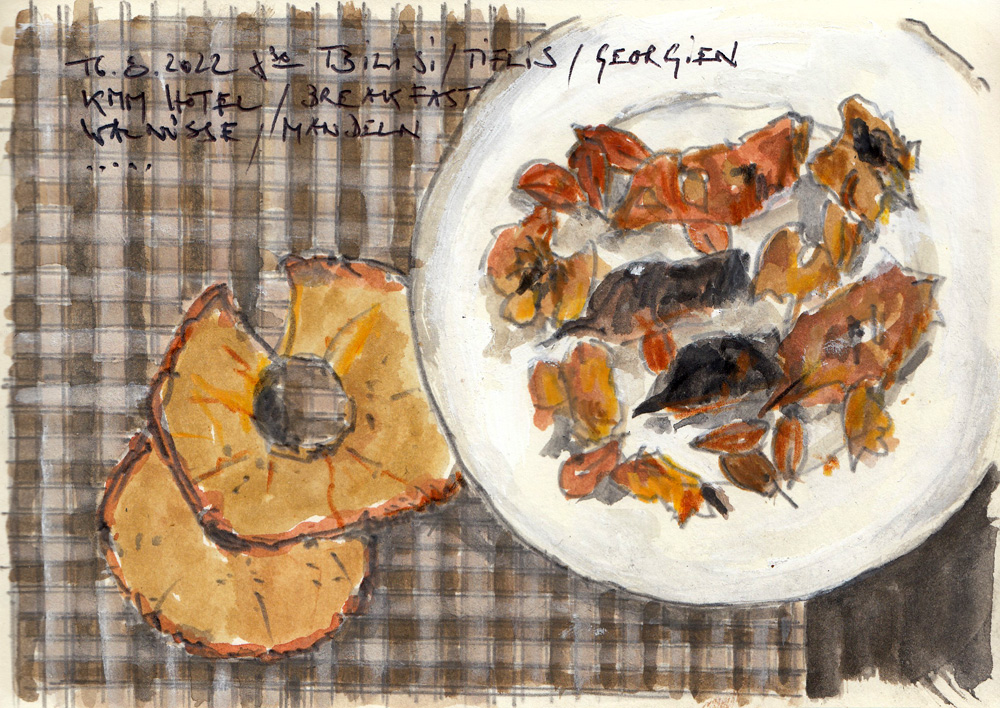 16.8.2022 8³⁰ TBiLiSi/TiFLiS/GEORGiEN
KMM HOTEL / BREAKFAST
WALNÜSSE / MANDELN
.....